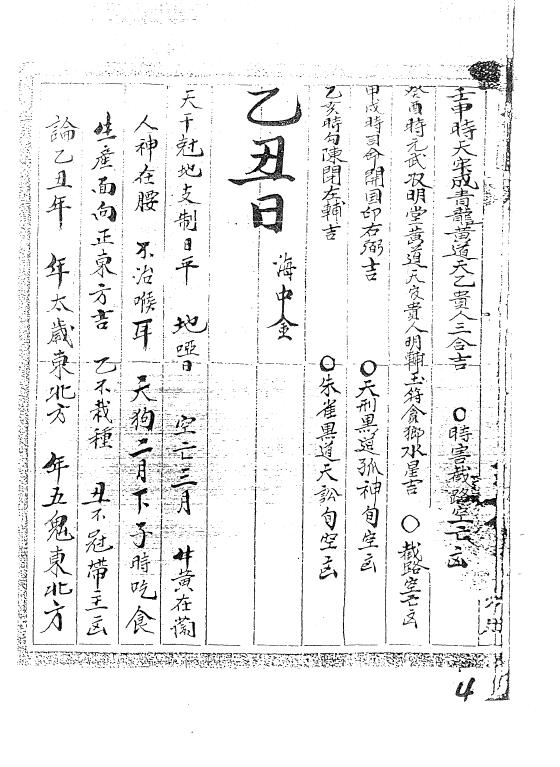 壬申時天牢成青龍黃道天乙貴人三合吉　〇時害截路空亡凶
癸酉時元武收明堂黃道天安貴人明輔玉符貪狼水星吉　〇截路空亡凶
甲戌時司命開國印右弼吉　〇天刑黑道孤神旬空凶
乙亥時勾陳閉左輔吉　〇朱雀黑道天訟旬空凶
乙丑日　海中金
天干尅地支制日平　地啞日　空亡三月　牛黃在蘭
人神在腰　不治喉耳　天狗二月下子時吃食
生產面向正東方吉　乙不栽種　丑不冠帶主凶
論乙丑年　年太歲東北方　年五鬼東北方
4